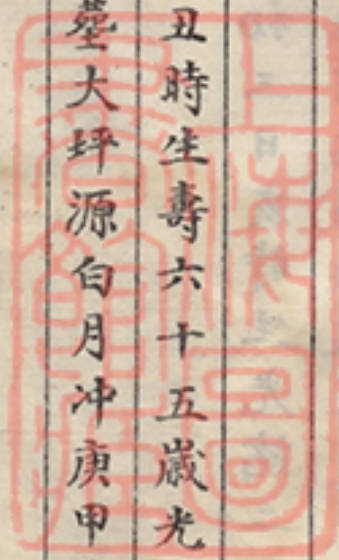 丑時生壽六十五歲光
塟大坪源白月冲庚甲